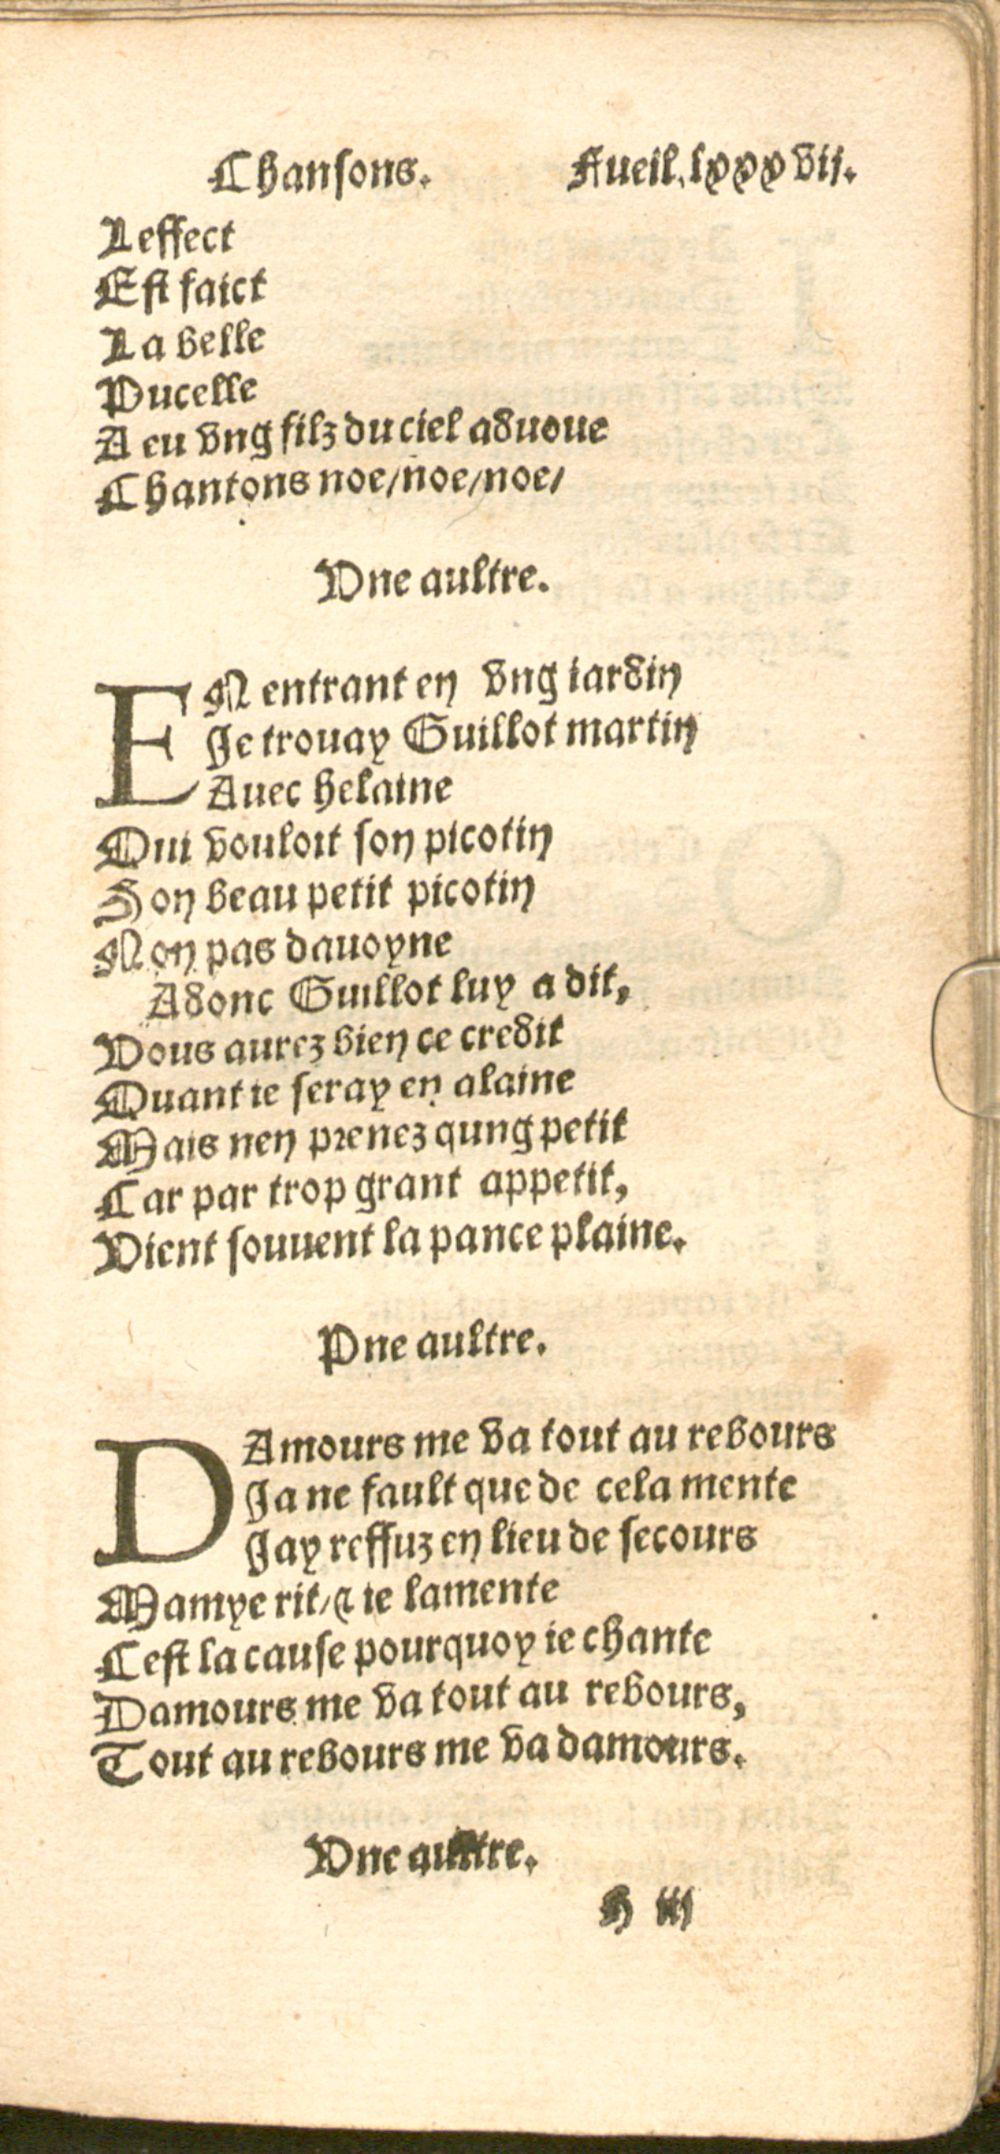 Chansons. Fueil.lxxxvij.
Leffect
Est faict
La belle
Pucelle
A eu vng filz du ciel aduoue
Chantons noe/noe/noe/
Vne aultre.
EN entrant en vng iardin
Je trouay Guillot martin
Auec helaine
Qui vouloit son picotin
Son beau petit picotin
Non pas dauoyne
Adonc Guillot luy a dit,
Vous aurez bien ce credit
Quant ie seray en alaine
Mais nen prenez qung petit
Car par trop grant appetit,
Vient souuent la pance plaine.
Pne aultre.
DAmours me va tout au rebours
Ja ne fault que de cela mente
Jay reffuz en lieu de secours
Mamye rit/& ie lamente
Cest la cause pourquoy ie chante
Damours me va tout au rebours,
Tout au rebours me va damours.
Vne aultre.
h iij